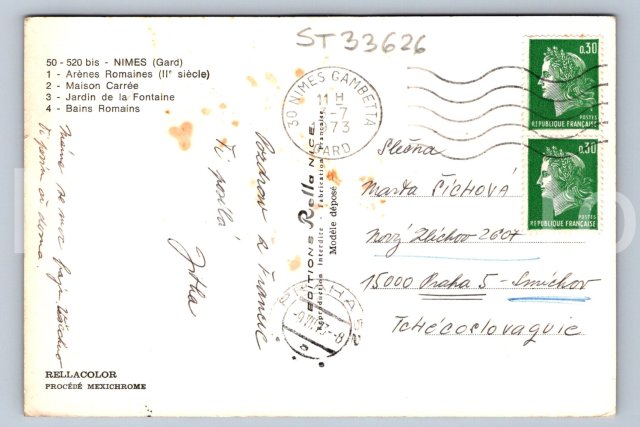 ST 33626
50 - 520 bis - NIMES (Gard)
1 - Arènes Romaines (IIe siècle)
2 - Maison Carrée
3 - Jardin de la Fontaine
4 - Bains Romains
30 NIMES GAMBETTA
11 H
-7
73
GARD
0,30
POSTES
REPUBLIQUE FRANÇAISE
0,30
POSTES
REPUBLIQUE FRANÇAISE
Pozdrav z Francie
Ti posílá
Jitka
Máme se moc
Ti povím až doma.
EDITIONS Rella NICE
Reproduction Interdite - Fabrication Française
Modèle déposé
Slečna
Marta ŠÍCHOVÁ
Nový Zlíchov 2607
15000 Praha 5 - Smíchov
Tchécoslovaquie
PRAHA 52
-9.VII.73-8
RELLACOLOR
PROCÉDÉ MEXICHROME